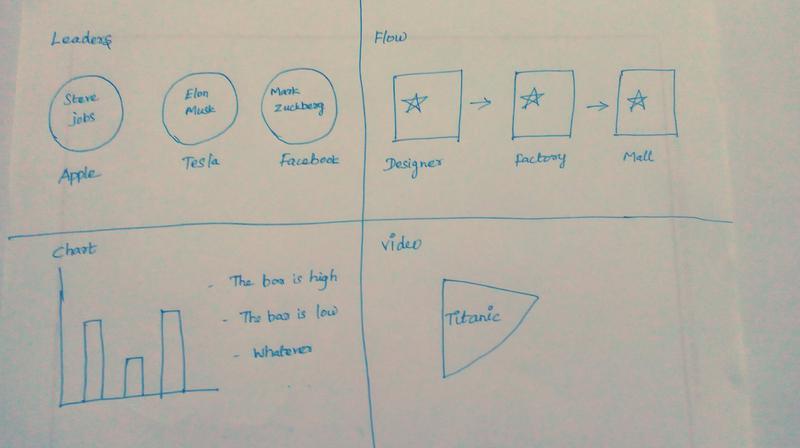 Leaders
Steve
jobs
Elon
Musk
Mark
Zuckberg
Apple
Tesla
Facebook
Flow
Designer
factory
Mall
Chart
- The bar is high
- The bar is low
- Whatever
Video
Titanic